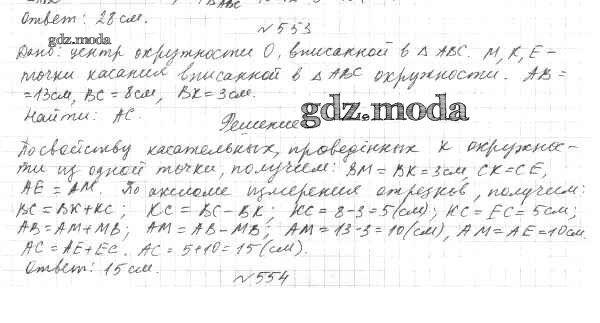 Ответ: 28 см.
№553
gdz.moda
Дано: центр окружности O, вписанной в △ ABC. M, K, E –
точки касания вписанной в △ ABC окружности. AB =
= 13см, BC = 8см, BK = 3см.
Найти: AC.
Решение
gdz.moda
По свойству касательных, проведённых к окружнос-
ти из одной точки, получаем: BM = BK = 3см, CK = CE,
AE = AM. По аксиоме измерения отрезков, получаем:
BC = BK + KC; KC = BC – BK; KC = 8 – 3 = 5(см); KC = EC = 5см;
AB = AM + MB; AM = AB – MB; AM = 13 – 3 = 10(см), AM = AE = 10см.
AC = AE + EC. AC = 5 + 10 = 15(см).
Ответ: 15см.
№554